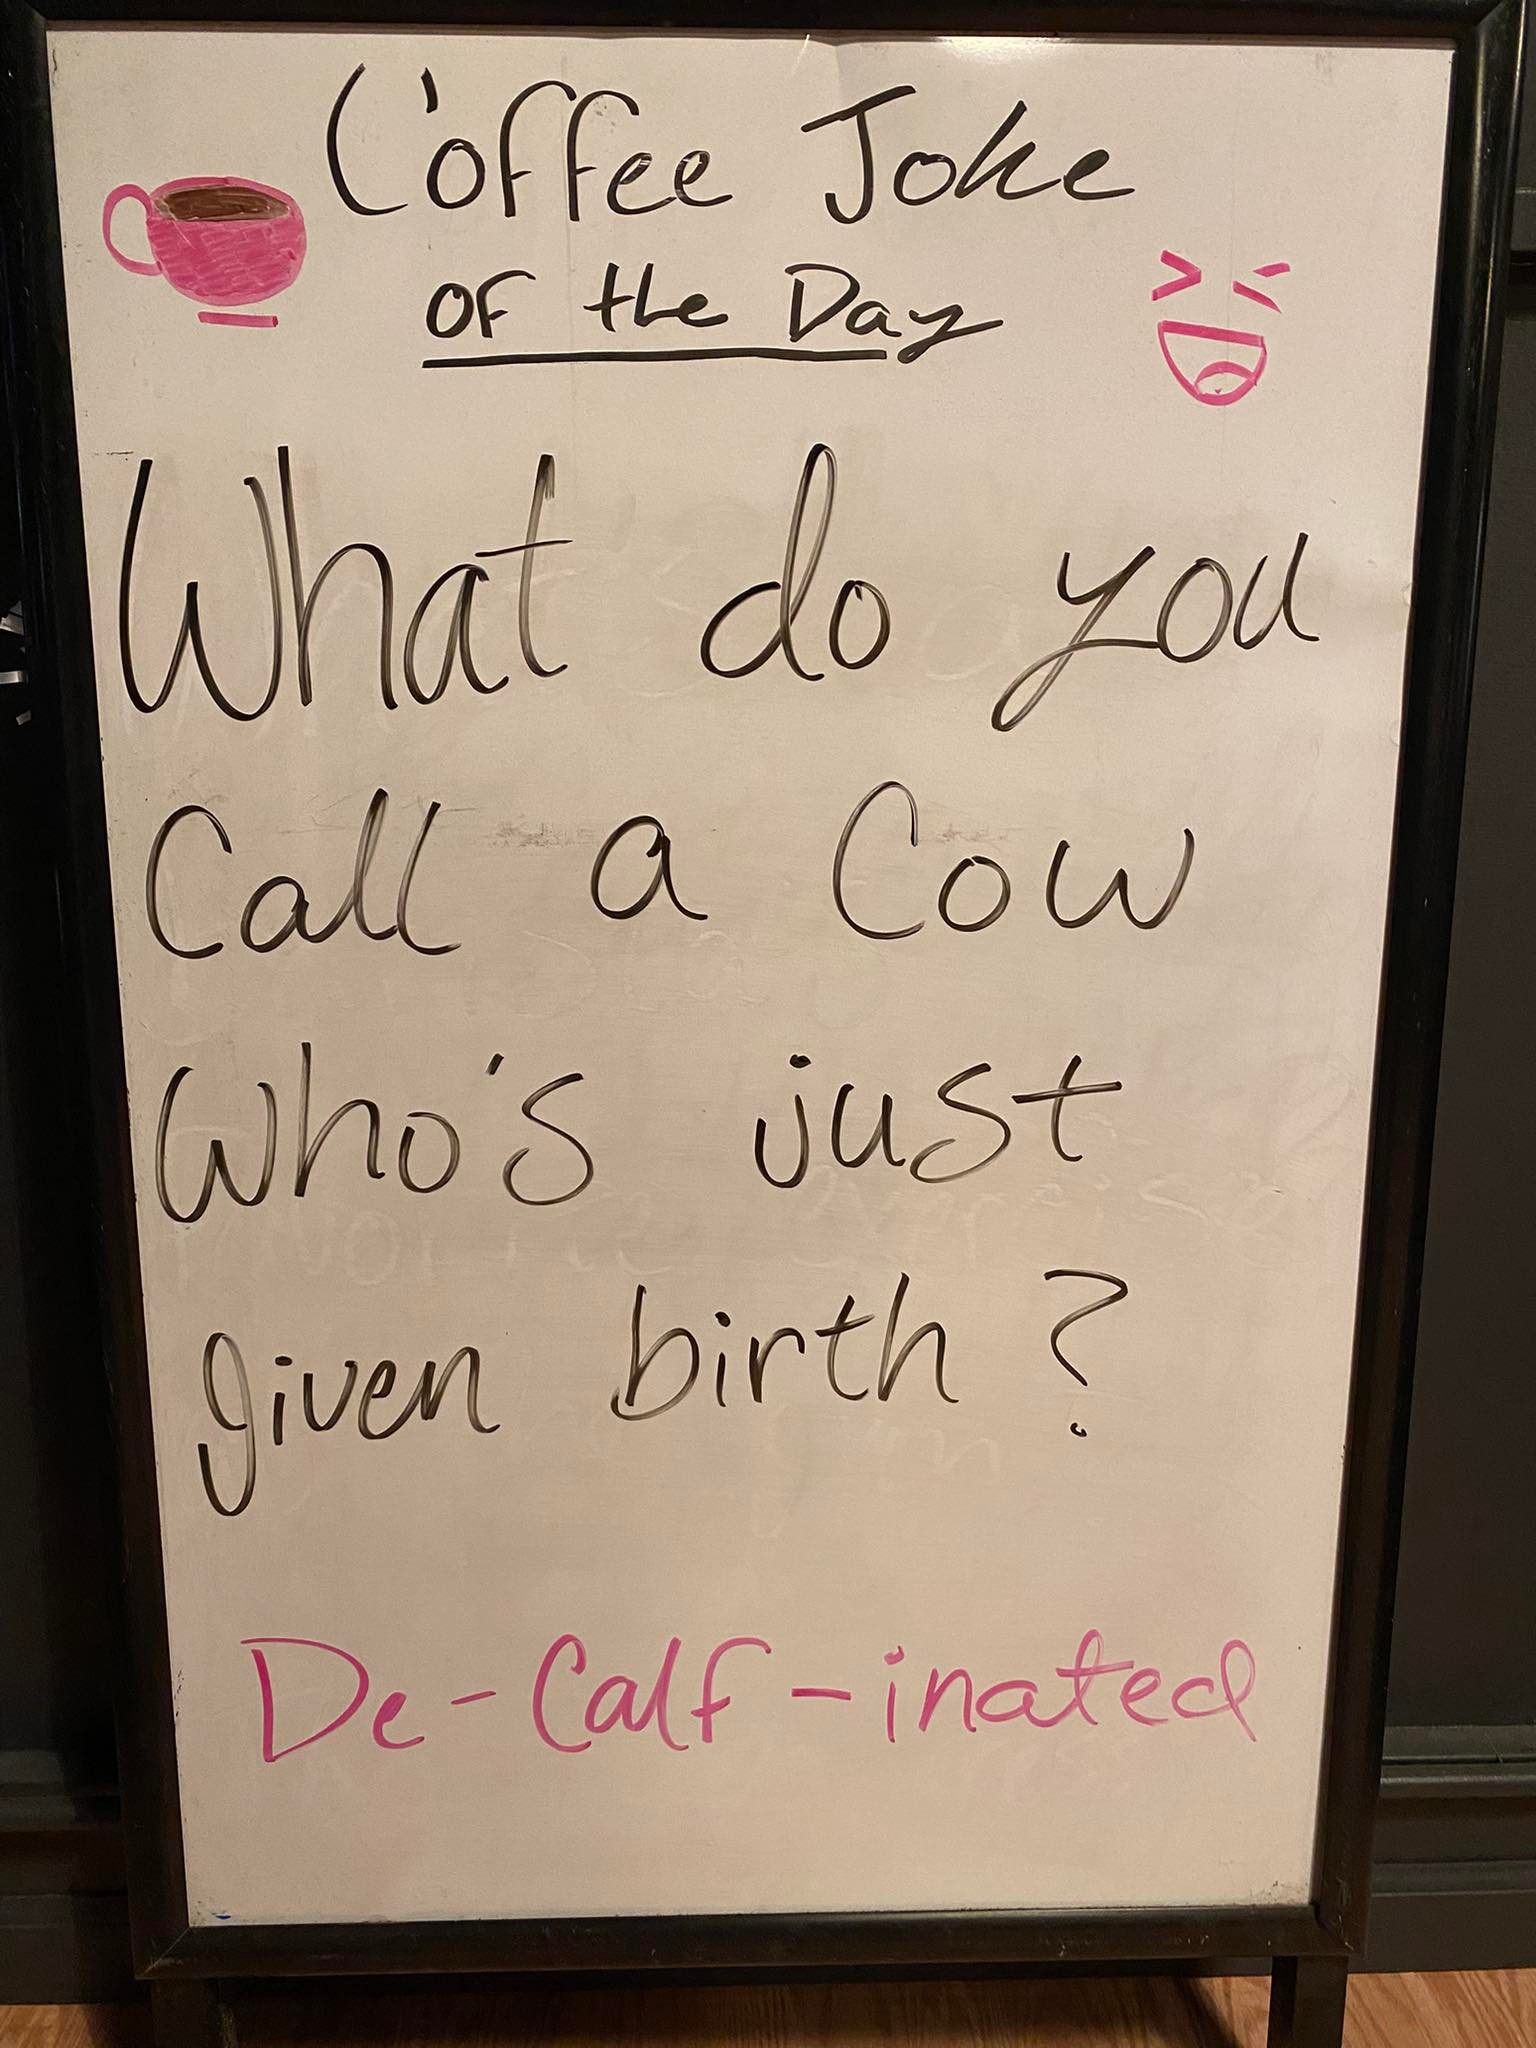 Coffee Joke
of the Day
What do you
Call a Cow
Who's just
given birth?
De-Calf-inated